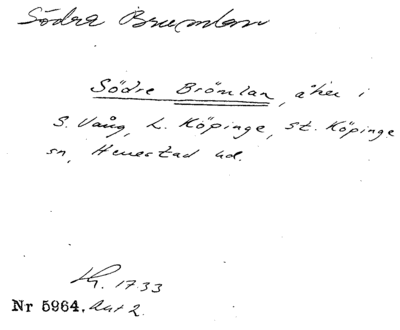 Södra Brumlan
Södre Brömlan, åker i
S. Vång, L. Köpinge, St. Köpinge
sn, Herrestad hd.
Kh. 1733
Nr 5964, Akt 2.